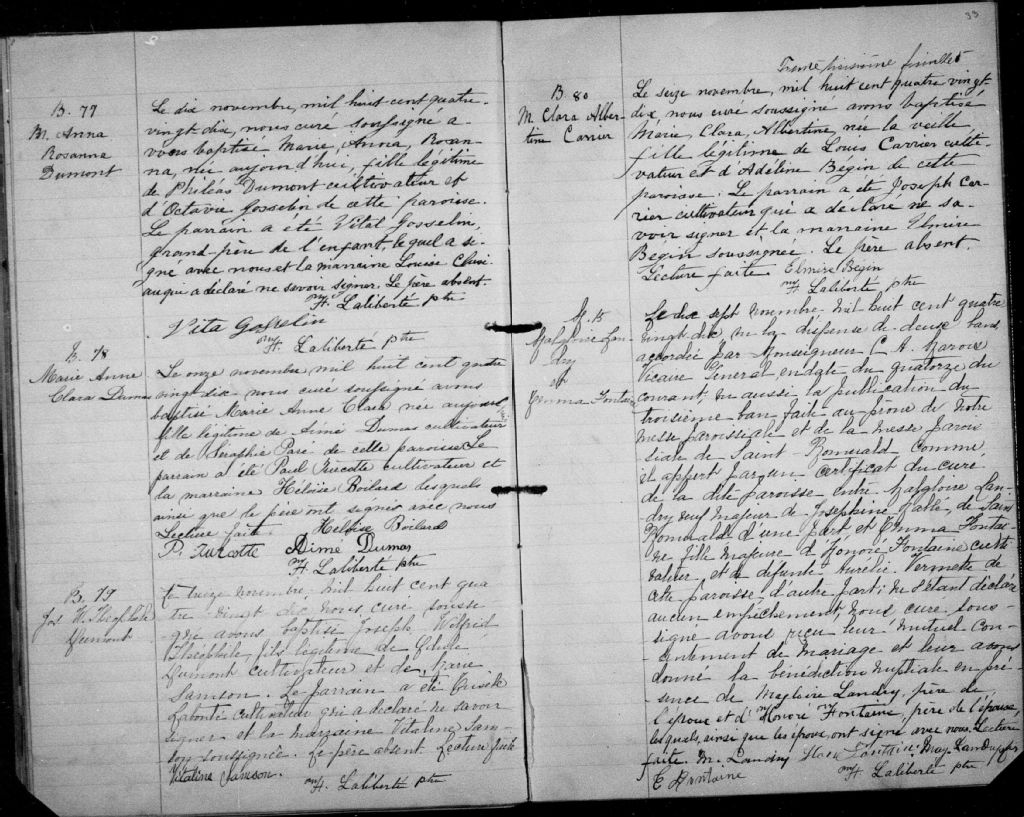 B. 77
M. Anna
Rosanna
Dumont
Le dix novembre, mil huit cent quatre-
vingt dix, nous curé soussigné a-
vons baptisé Marie, Anna, Rosan-
na, née aujourd'hui, fille légitime
de Philéas Dumont cultivateur et
d'Octavie Gosselin de cette paroisse.
Le parrain a été Vital Gosselin,
grand-père de l'enfant, lequel a si-
gné avec nous et la marraine Louise
qui a déclaré ne savoir signer. Le père absent.
F. H. Laliberté ptre
Vita Gosselin
F. H. Laliberté ptre
B. 78
Marie Anne
Clara Dumas
Le onze novembre mil huit cent quatre
vingt dix nous curé soussigné avons
baptisé Marie Anne Clara née aujourd'hui
fille légitime de Aimé Dumas cultivateur
et de Séraphie Paré de cette paroisse Le
parrain a été Paul Turcotte cultivateur et
la marraine Héloïse Boilard lesquels
ainsi que le père ont signés avec nous
Lecture faite. Helloise Boilard
P. Turcotte Aimé Dumas
F. H. Laliberté ptre
B. 79
Jos. W. Théophile
Dumont
Le treize novembre mil huit cent qua
tre vingt dix nous curé soussi
gné avons baptisé Joseph Wilfrid
Théophile, fils légitime de
Dumont cultivateur et de Marie
Samson. Le parrain a été
Labonté cultivateur qui a déclaré ne savoir
signer et la marraine Vitaline Sam-
son soussignée. Le père absent Lecture faite
Vitaline Samson.
F. H. Laliberté ptre
33
Trente troisième feuillet
B. 80
M. Clara Alber-
tine Carrier
Le seize novembre, mil huit cent quatre vingt
dix, nous curé soussigné avons baptisé
Marie, Clara, Albertine, née la veille
fille légitime de Louis Carrier culti-
vateur et d'Adéline Bégin de cette
paroisse. Le parrain a été Joseph Car-
rier cultivateur qui a déclaré ne sa-
voir signer et la marraine Elmire
Bégin soussignée. Le père absent.
Lecture faite Elmire Bégin
F. H. Laliberté ptre
M. 15
Magloire Lan-
dry
et
Emma Fontaine
Le dix sept novembre mil huit cent quatre
vingt dix vu la dispense de deux bans
accordée par Monseigneur C. A. Marois
Vicaire Général, en date du quatorze du
courant, vu aussi la publication du
troisième ban faite au prône de notre
messe paroissiale et de la messe parois
siale de Saint Romuald comme
il appert par un certificat du curé
de la dite paroisse entre Magloire Lan-
dry veuf majeur de Joséphine Hallé, de Saint
Romuald d'une part et Emma Fontai-
ne fille majeure d'Honoré Fontaine culti-
vateur et de défunte Aurélie Vermette de
cette paroisse d'autre part; ne s'étant déclaré
aucun empêchement, nous curé sous-
signé avons reçu leur mutuel con-
sentement de mariage et leur avons
donné la bénédiction nuptiale en pré-
sence de Magloire Landry, père de
l'époux et d'Honoré Fontaine, père de l'épouse,
lesquels, ainsi que les époux, ont signé avec nous. Lecture
faite. M. Landry Fontaine Mag. Landry fils
E Fontaine
F. H. Laliberté ptre